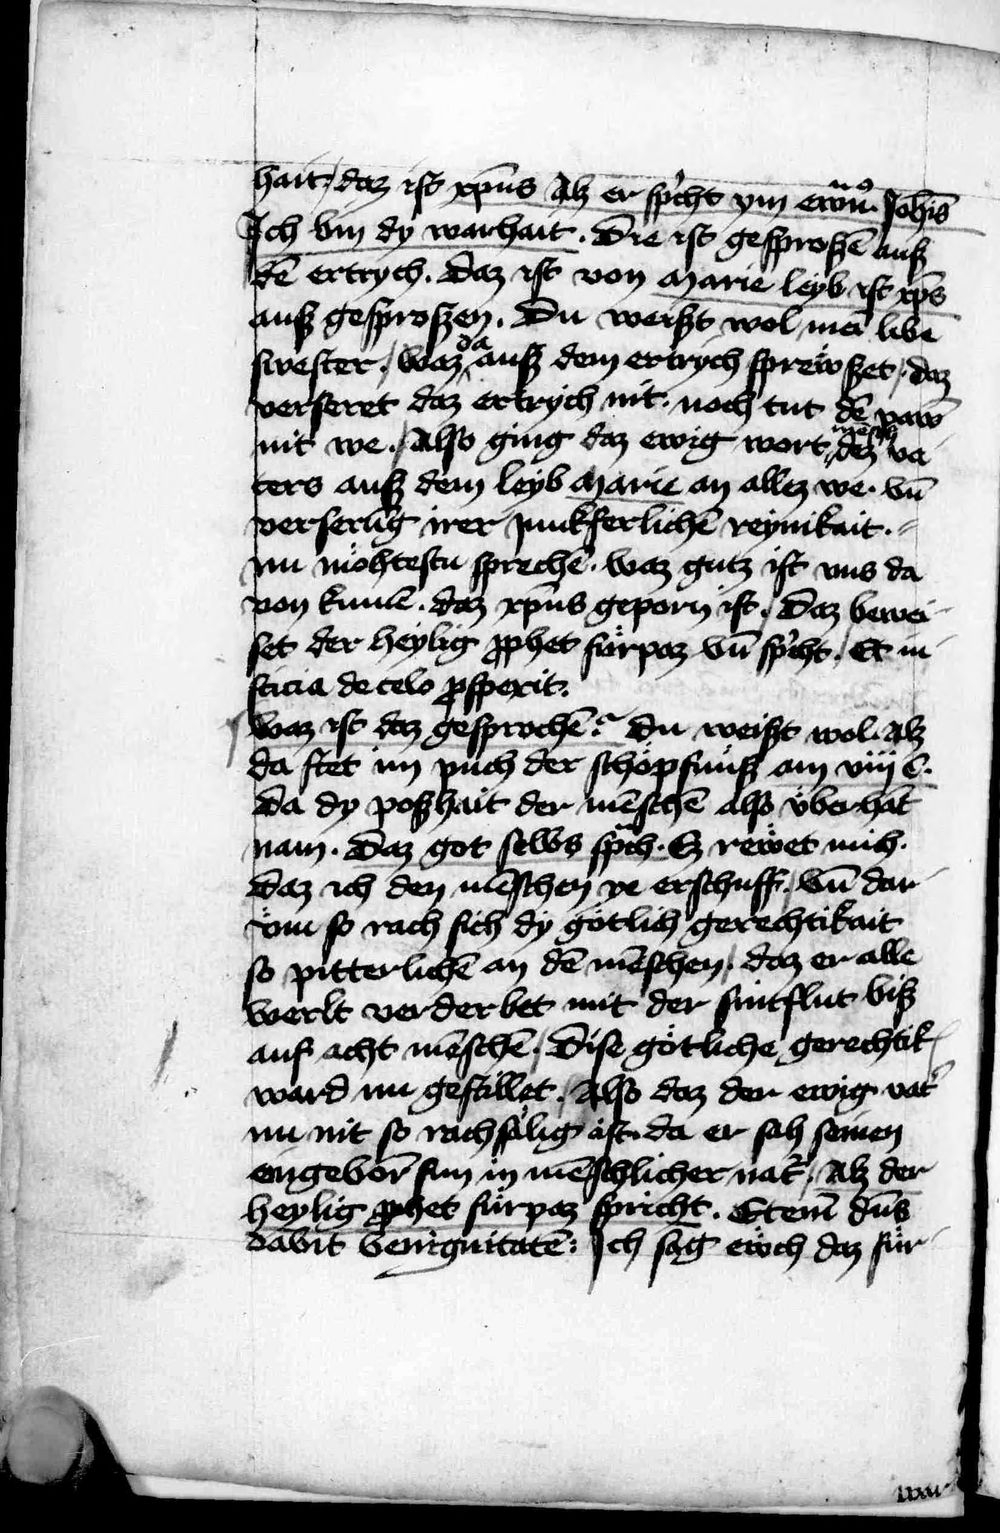 hait / daz ist xp̄us Alz er sp̃cht ym ewū. Joh̄is
Jch bin dy warhait . Die ist gesproßē auß
dē ertrych . Daz ist von Marie leyb ist xp̄s
auß gesproßen . Du weißt wol mei libē
swester / waz da auß dem ertrych sprewßet / daz
verseret daz ertrych nit . noch tut dē
nit we . / Also ging daz ewig wort dez va
ters auß dem leyb Marie an allez we . vn̄
verserūg irer junkferlichē reynikait .
nu möhtestu sprechē . waz gutz ist vns da
von kumē . daz xp̄us geporn ist / Daz bewei
set der heylig ꝓphet fürpaz vn̄ sp̃cht . Et iu
sticia de celo ꝓspexit .
Waz ist daz gesprochē ? du weißt wol . Alz
da stet im puch der schöpfung am viij c̄ .
Da dy poßhait der mēschē also überhāt
nam . Daz got selbs spͣch . Ez rewet mich .
Daz ich den mēschen ye erschuff / Vn̄ dar
vm so rach sich dy götlich gerechtikait
so pitterlichē an dē mēschen / daz er alle
werlt verderbet mit der sintflut biß
auf acht mēschē / Dise götliche gerechtik
ward nu gestillet . Also daz der ewig vat̃
nu nit so rachsälig ist . da er sah seinen
eingeborn̄ sun in mēschlicher nat̃ / Alz der
heylig ꝓphet fürpaz spricht . Etenī dn̄s
dabit benignitatē : Jch sag ewch daz für